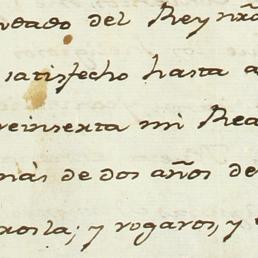 del Reyno
satisfecho hasta a
reinserta mi Rea
más de dos años de
; y rogaros, y